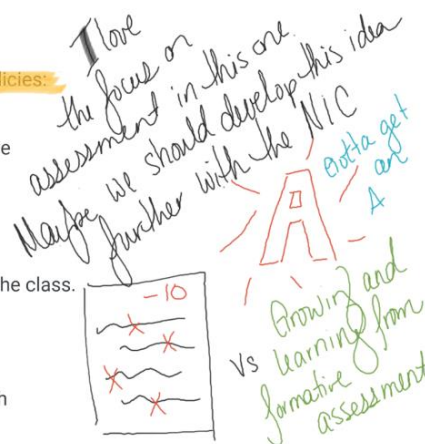 I love
the focus on
assessment in this one.
Maybe we should develop this idea
further with the NIC
licies:
e
he class.
h
A
Gotta get
an
A
-10
vs
Growing and
learning from
formative
assessment